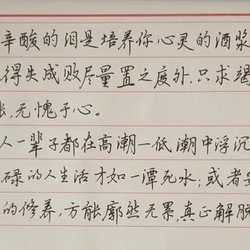 辛酸的泪是培养你心灵的酒浆
得失成败尽量置之度外,只求
,无愧于心。
人一辈子都在高潮—低潮中浮沉
碌的人生活才如一潭死水;或者
的修养,方能廓然无累,真正解脱